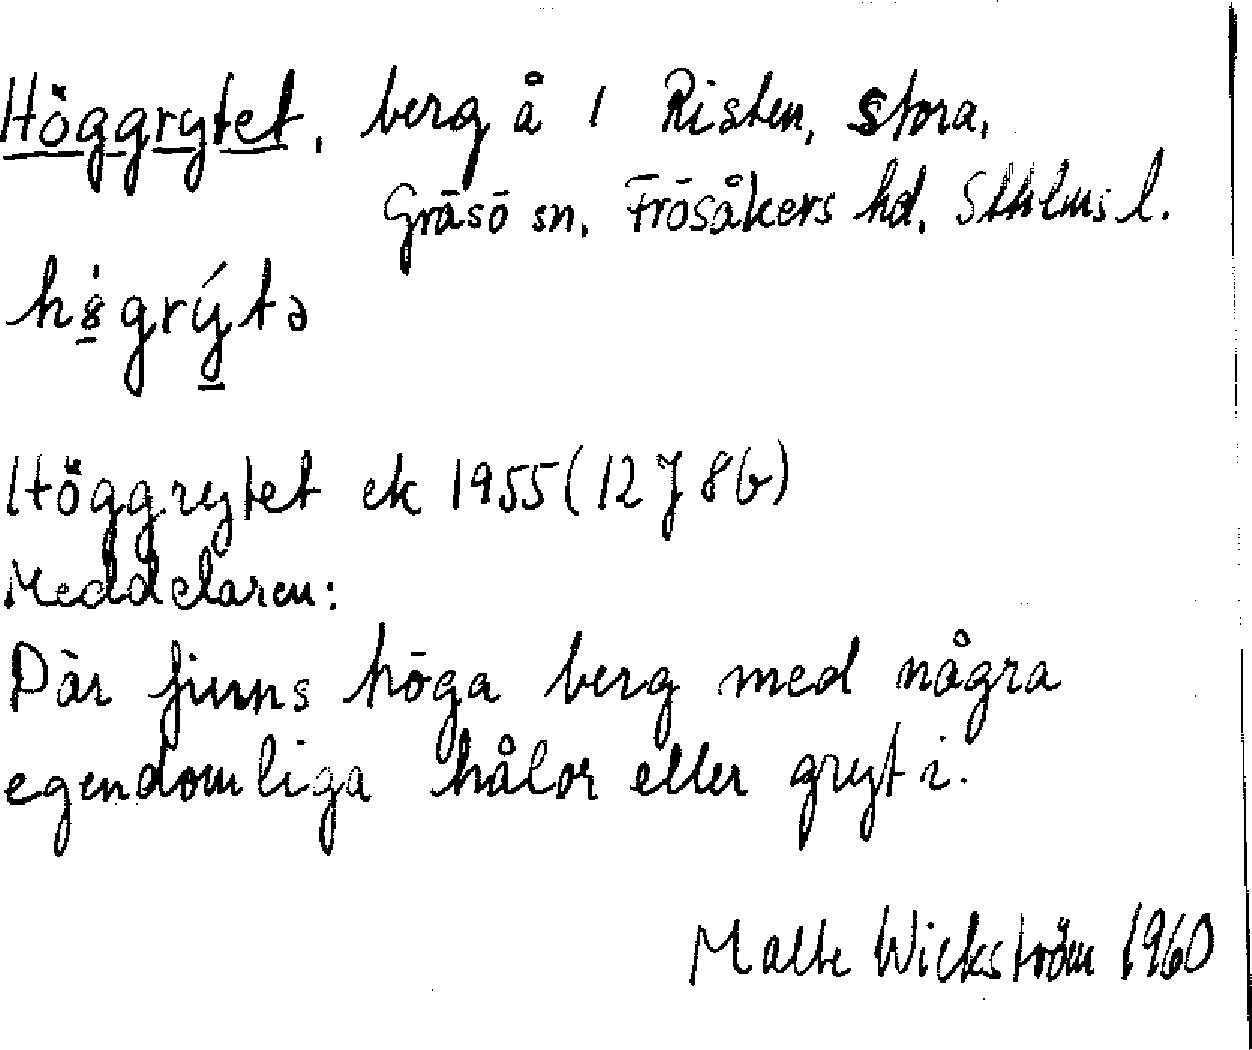 Höggrytet, berg å 1 Risten, Stora,
Gräsö sn, Frösåkers hd, Sthlms l.
Höggrytet ek 1955 (12 J 8 b)
Meddelaren:
Där finns höga berg med några
egendomliga hålor eller gryt i.
Malte Wickström 1960